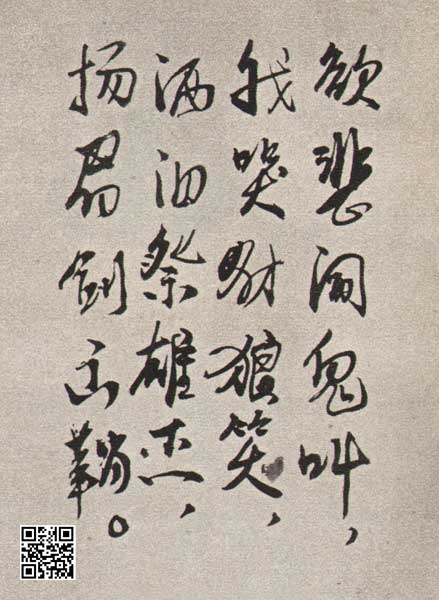 欲悲闻鬼叫，
我哭豺狼笑，
洒泪祭雄杰，
扬眉剑出鞘。